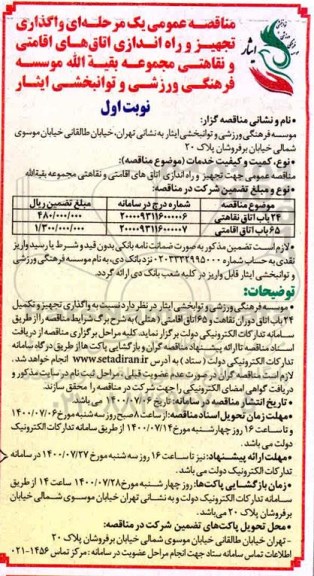 مناقصه عمومی یک مرحله‌ای واگذاری
تجهیز و راه اندازی اتاق‌های اقامتی
و نقاهتی مجموعه بقیة الله موسسه
فرهنگی ورزشی و توانبخشی ایثار
ایثار
نوبت اول
• نام و نشانی مناقصه گزار:
موسسه فرهنگی ورزشی و توانبخشی ایثار به نشانی تهران، خیابان طالقانی خیابان موسوی
شمالی خیابان برفروشان پلاک ۲۰
• نوع، کمیت و کیفیت خدمات (موضوع مناقصه):
مناقصه عمومی جهت تجهیز و راه اندازی اتاق های اقامتی و نقاهتی مجموعه بقیةالله
• نوع و مبلغ تضمین شرکت در مناقصه:
موضوع مناقصه شماره درج در سامانه مبلغ تضمین ریال
۲۴ باب اتاق نقاهتی ۲۰۰۰۰۹۳۱۱۶۰۰۰۰۰۶ ۴۸۰/۰۰۰/۰۰۰
۶۵ باب اتاق اقامتی ۲۰۰۰۰۹۳۱۱۶۰۰۰۰۰۷ ۱/۳۰۰/۰۰۰/۰۰۰
• لازم است تضمین مذکور به صورت ضمانت نامه بانکی بدون قید و شرط یا رسید واریز
نقدی به حساب شماره ۰۲۰۳۳۲۲۹۹۵۰۰۰ نزد بانک دی، به نام موسسه فرهنگی ورزشی
و توانبخشی ایثار قابل واریز در کلیه شعب بانک دی ارائه گردد.
توضیحات:
• موسسه فرهنگی ورزشی و توانبخشی ایثار در نظر دارد نسبت به واگذاری تجهیز و تکمیل
۲۴ باب اتاق دوران نقاهت و ۶۵ اتاق اقامتی (هتل) به شرح برگه شرایط مناقصه را از طریق
سامانه تدارکات الکترونیکی دولت برگزار نماید. کلیه مراحل برگزاری مناقصه از دریافت
اسناد مناقصه تا ارائه پیشنهاد مناقصه گران و بازگشایی پاکت‌ها از طریق درگاه سامانه
تدارکات الکترونیکی دولت (ستاد) به آدرس www.setadiran.ir انجام خواهد شد.
لازم است مناقصه گران در صورت عدم عضویت قبلی، مراحل ثبت نام در سایت مذکور و
دریافت گواهی امضای الکترونیکی را جهت شرکت در مناقصه را محقق سازند.
• تاریخ انتشار مناقصه در سامانه: تاریخ ۱۴۰۰/۰۷/۰۶ می باشد.
• مهلت زمان تحویل اسناد مناقصه: از ساعت ۸ صبح روز سه شنبه مورخ ۱۴۰۰/۰۷/۰۶
و تا ساعت ۱۶ روز چهارشنبه مورخ ۱۴۰۰/۰۷/۱۴ از طریق سامانه تدارکات الکترونیک
دولت می باشد.
• مهلت ارائه پیشنهاد: نیز تا ساعت ۱۶ روز سه شنبه مورخ ۱۴۰۰/۰۷/۲۷ در سامانه
تدارکات الکترونیک دولت می باشد.
• زمان بازگشایی پاکت‌ها: روز چهار شنبه مورخ ۱۴۰۰/۰۷/۲۸ ساعت ۱۴ از طریق
سامانه تدارکات الکترونیک دولت و به نشانی تهران خیابان موسوی شمالی خیابان
برفروشان پلاک ۲۰ می باشد.
• محل تحویل پاکت‌های تضمین شرکت در مناقصه:
- تهران خیابان طالقانی خیابان موسوی شمالی خیابان برفروشان پلاک ۲۰
اطلاعات تماس سامانه ستاد جهت انجام مراحل عضویت در سامانه: مرکز تماس ۱۴۵۶-۰۲۱